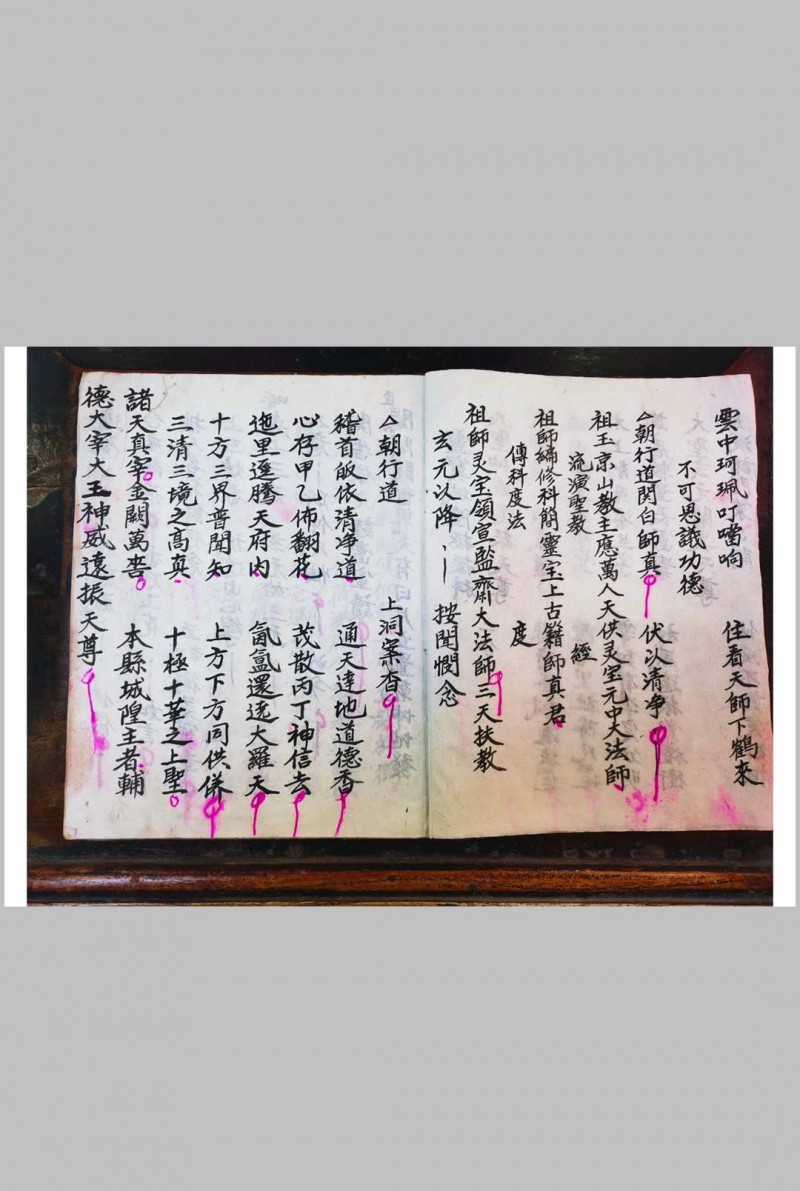 雲中珂珮叮噹响 住看天師下鶴來
不可思議功德
朝行道関白師真 伏以清净
祖玉京山教主應萬人天供灵宝元中大法師
流演聖教 經
祖師編修科簡靈宝上古籍師真君
傳科度法 度
祖師灵宝領宣監齋大法師三天扶教
玄元以降 按聞憫念
朝行道 上洞案香
稽首皈依清净道 通天達地道德香
心存甲乙佈翻花 茂散丙丁神信去
迤里逕騰天府内 氤氲還透大羅天
十方三界普聞知 上方下方同供併
三清三境之高真 十極十華之上聖
諸天真宰金闕萬 本縣城隍王者輔
德大宰大王神威遠振天尊